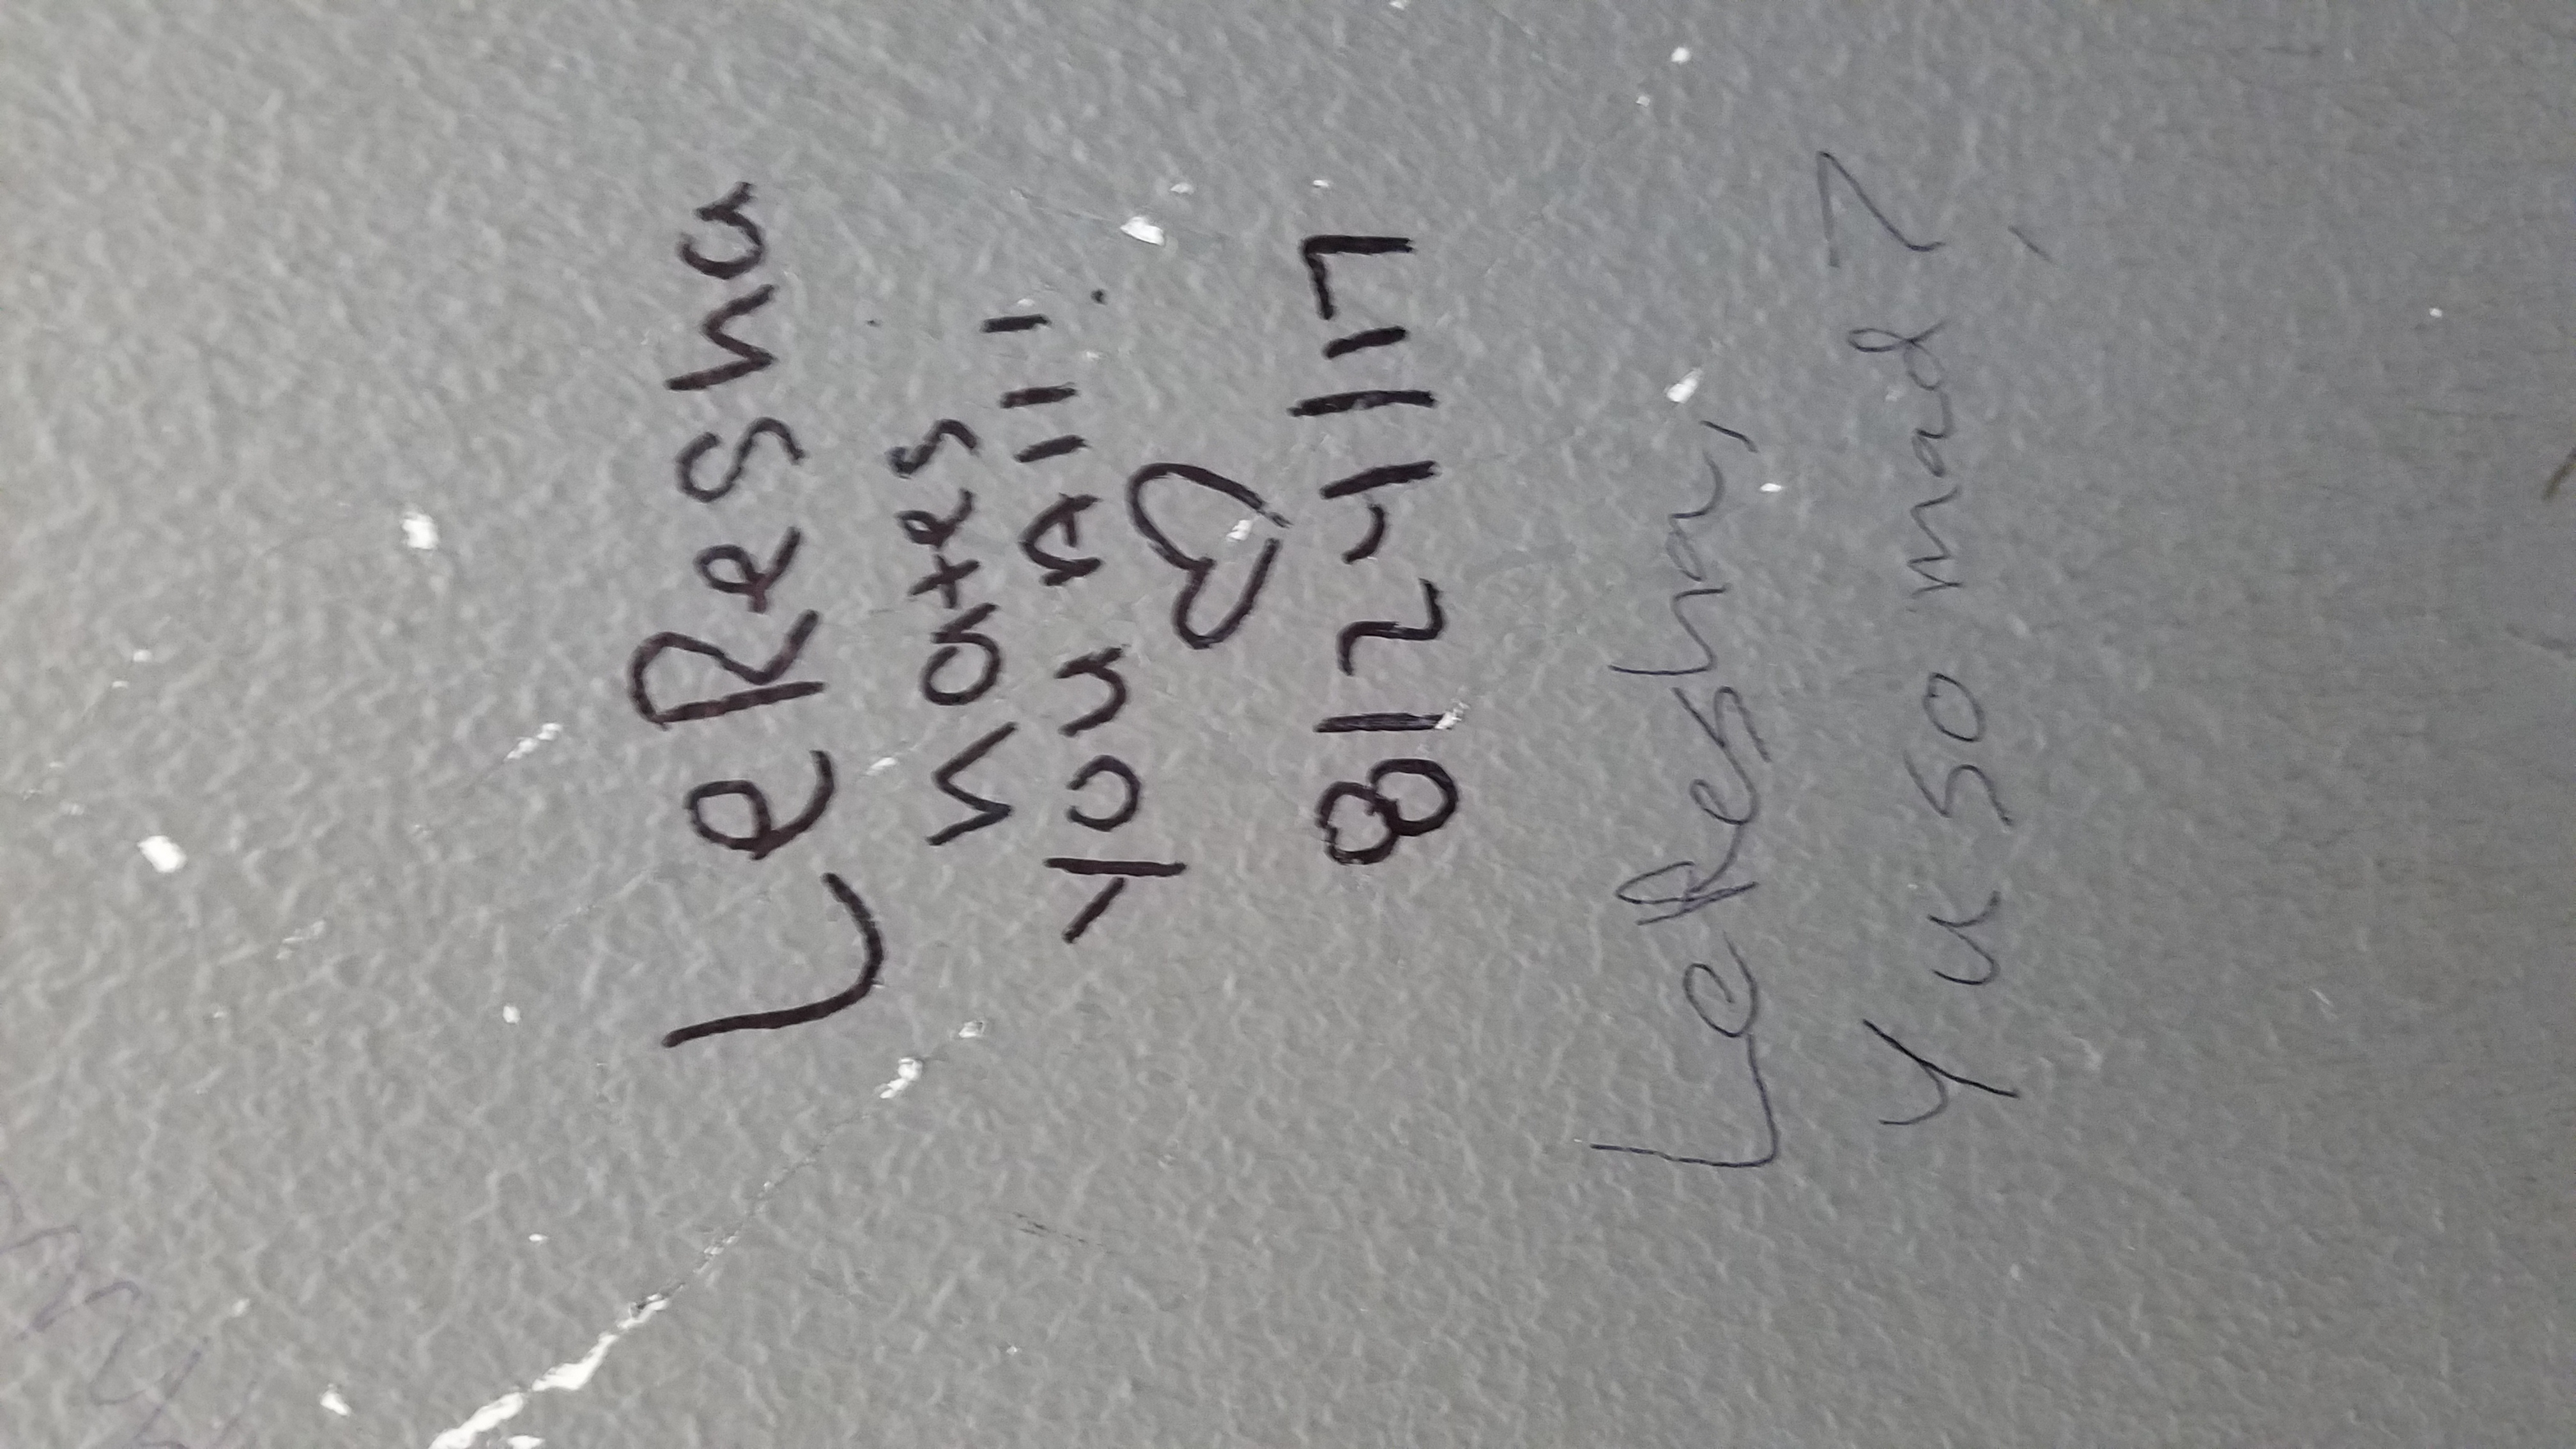 LeResha
hates
you All!
8/24/17
LeResha,
y u so mad?